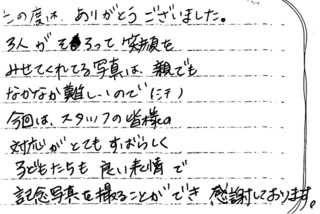 この度は ありがとうございました。
3人がそろって笑顔を
みせてくれてる写真は、親でも
なかなか難しいので(汗)
今回は、スタッフの皆様の
対応がとてもすばらしく
子どもたちも良い表情で
記念写真を撮ることができ感謝しております。